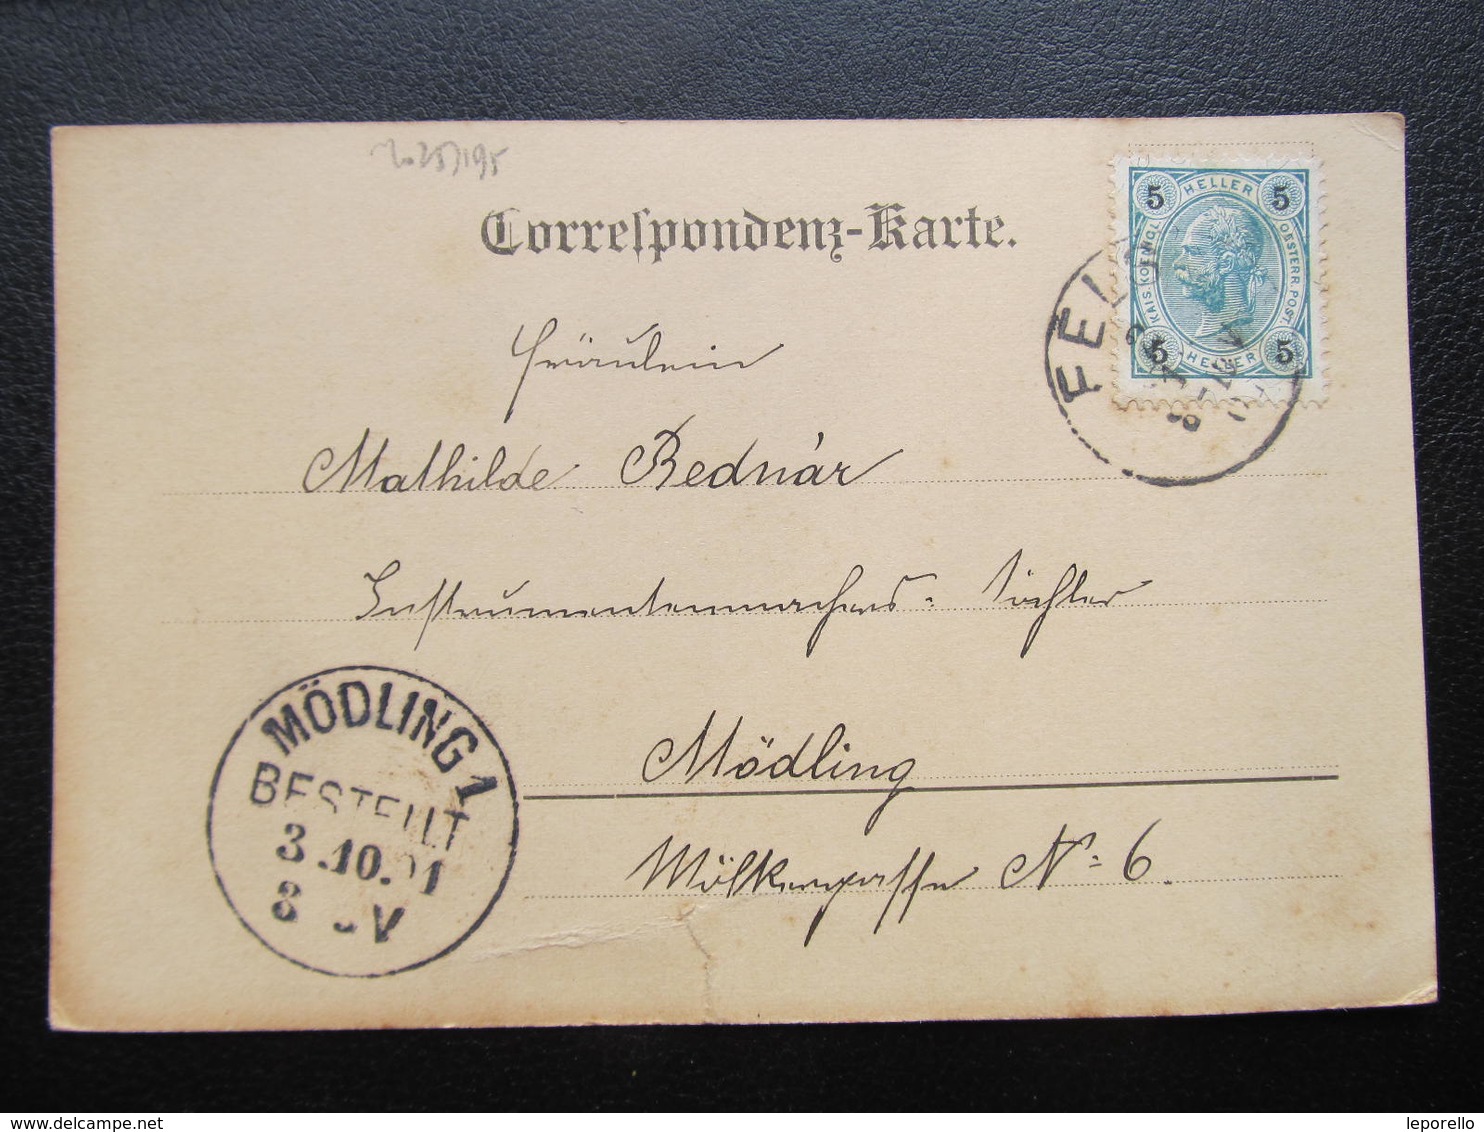 Correspondenz-Karte.
5 HELLER 5
KAIS. KOENIGL. OESTERR. POST
5 HELLER 5
FEL
Fräulein
Mathilde Bednár
Instrumentenmachers-Töchter
Mödling
Mölkergasse No 6.
MÖDLING 1
BESTELLT
3.10.01
8 V
leporello